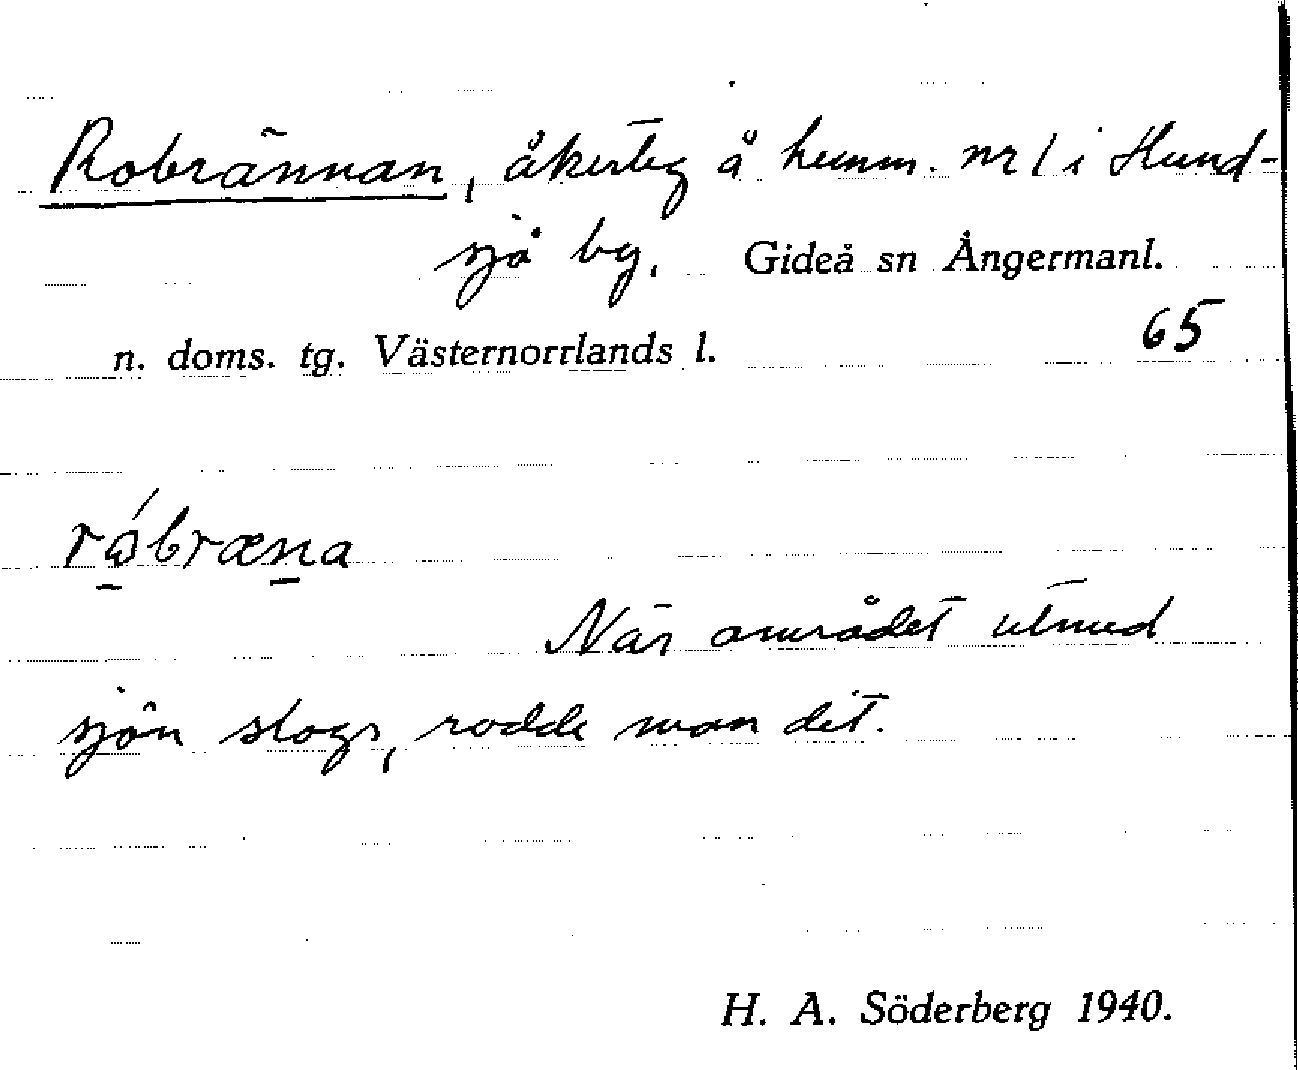 Robrännan, åkerteg å hemm. nr 1 i Hund-
sjö by. Gideå sn Ångermanl.
n. doms. tg. Västernorrlands l. 65
róbræna
När området utmed
sjön slogs, rodde man dit.
H. A. Söderberg 1940.